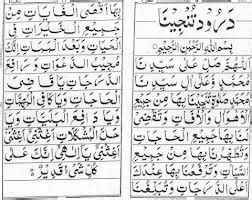 دَرُود تُنَجِّيْنَا
بِسْمِ اللّٰهِ الرَّحْمٰنِ الرَّحِيْمِ
اَللّٰهُمَّ صَلِّ عَلٰى سَيِّدِنَا
مُحَمَّدٍ وَّعَلٰى اٰلِ سَيِّدِنَا
مُحَمَّدٍ صَلٰوةً تُنَجِّيْنَا بِهَا مِنْ جَمِيْعِ
الْاَهْوَالِ وَالْاٰفَاتِ وَتَقْضِيْ لَنَا
بِهَا جَمِيْعَ الْحَاجَاتِ
وَتُطَهِّرُنَا بِهَا مِنْ جَمِيْعِ
السَّيِّاٰتِ وَتَرْفَعُنَا بِهَا
اَعْلَى الدَّرَجَاتِ وَتُبَلِّغُنَا
بِهَا اَقْصَى الْغَايَاتِ مِنْ
جَمِيْعِ الْخَيْرَاتِ فِي
الْحَيَاتِ وَبَعْدَ الْمَمَاتِ اِنَّكَ
مُجِيْبُ الدَّعَوَاتِ وَرَافِعُ
الدَّرَجَاتِ يَا قَاضِيَ
الْحَاجَاتِ وَيَا كَافِيَ الْمُهِمَّاتِ
وَيَا دَافِعَ الْبَلِيَّاتِ وَيَا
حَلَّ الْمُشْكِلَاتِ اَغِثْنِيْ
اَغِثْنِيْ يَا اِلٰهِيْ اِنَّكَ عَلٰى
كُلِّ شَيْءٍ قَدِيْرٌ